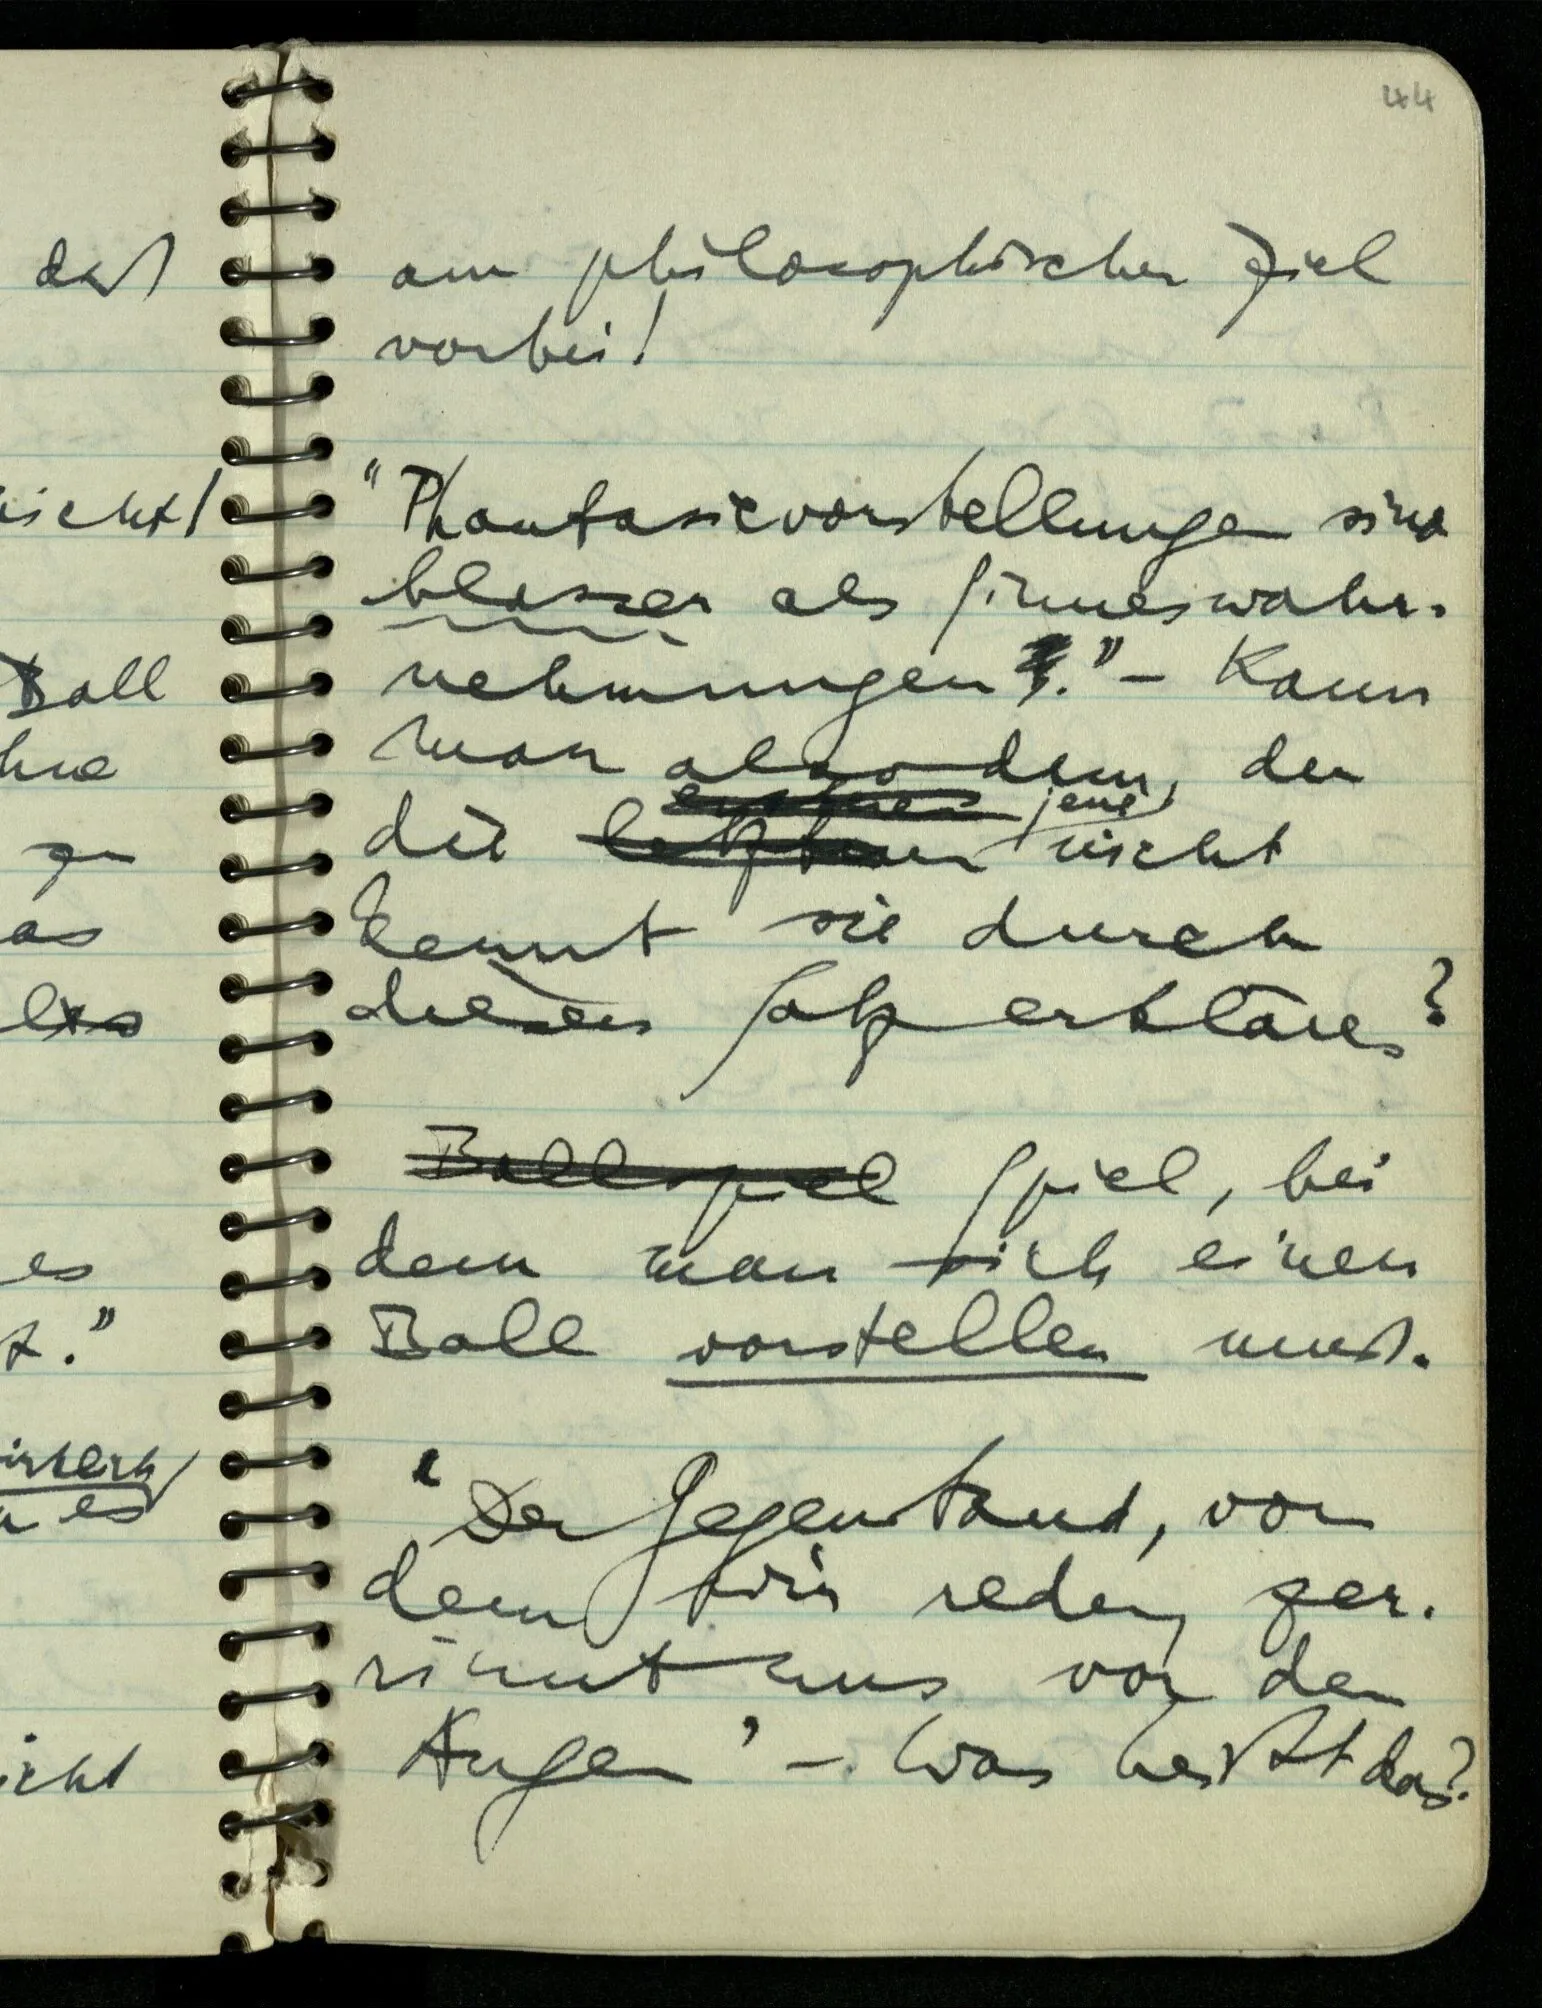 44
daß
am philosophischen Ziel
vorbei!
nicht!
"Phantasievorstellungen sind
blasser als Sinneswahr-
nehmungen." – Kann
Ball
man also dem, der
ersteren jene
die letzteren nicht
kennt sie durch
as
diesen Satz erklären?
Ballspiel Spiel, bei
dem man sich einen
es
Ball vorstellen muß.
."
"Der Gegenstand, von
es
dem wir reden, zer-
rinnt uns vor den
Augen" – Was heißt das?
icht